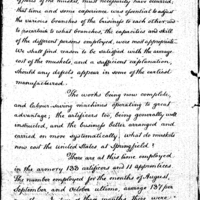 parts of the musket, must necessarily have ensured,
that time and some experience was essential to adjust
the various branches of the business to each other, &
to ascertain to what branches, the capacities and skill
of the different persons employed, were most appropriate.
We shall find reason to be satisfied with the average
cost of the muskets, and a sufficient explanation,
should any defects appear in some of the earliest
manufactured.
The works being now complete,
and labour-saving machines operating to great
advantage; the artificers too, being generally well
instructed, and the business better arranged and
carried on more systematically, what do muskets
now cost the United States at Springfield?
There are at this time employed
in the armory 133 artificers and 11 apprentices.
The number employed for the months of August,
September, and October ultimo, average 137 per
these months there were